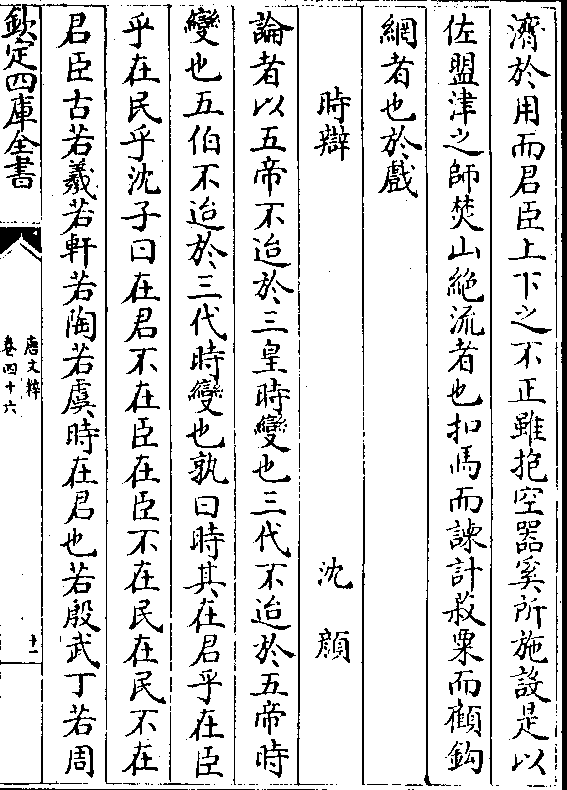 濟於用而君臣上下之不正雖抱空器奚所施設是以
佐盟津之師焚山絶流者也扣馬而諫計菽粟而顧鈎
網者也於戲
時辯　沈顔
論者以五帝不迨於三皇時變也三代不迨於五帝時
變也五伯不迨於三代時變也孰曰時其在君乎在臣
乎在民乎沈子曰在君不在臣在臣不在民在民不在
君臣古若羲若軒若陶若虞時在君也若殷武丁若周
欽定四庫全書
唐文粹
卷四十六
十一